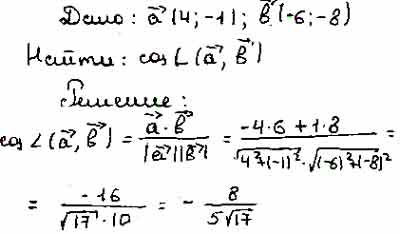 Дано: a⃗ {4; -1}; b⃗ {-6; -8}
Найти: cos∠(a⃗, b⃗)
Решение:
cos∠(a⃗, b⃗) = (a⃗ · b⃗)/(|a⃗||b⃗|) = (-4·6 + 1·8)/(√(4² + (-1)²) · √((-6)² + (-8)²)) =
= (-16)/(√17 · 10) = - 8/(5√17)